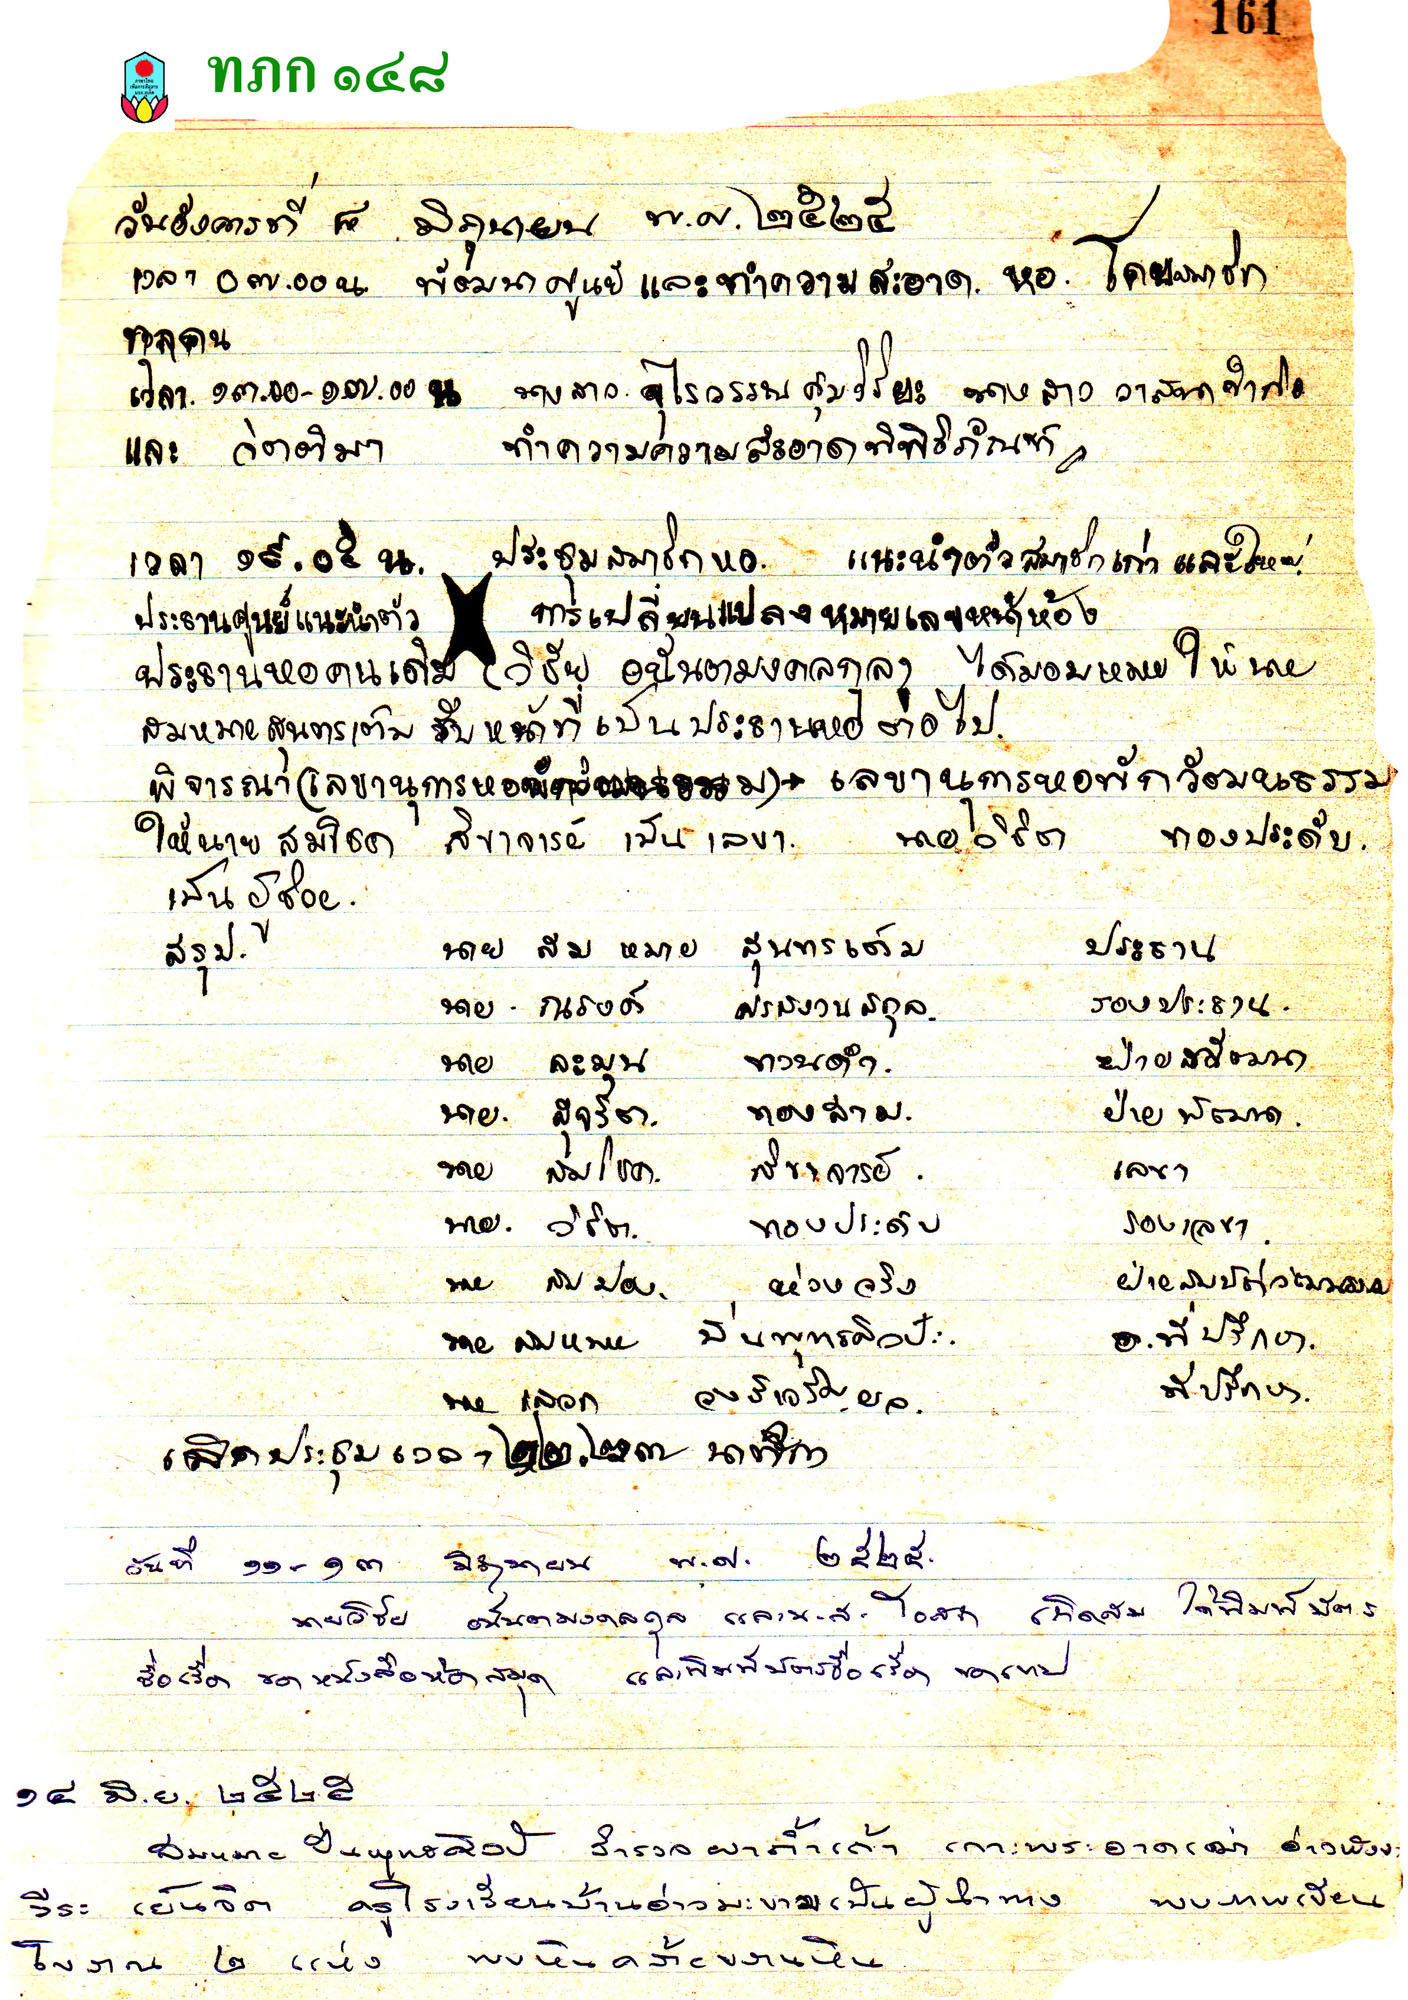 161
ทภก ๑๔๘
วันอังคารที่ ๘ มิถุนายน พ.ศ. ๒๕๒๕
เวลา ๐๗.๐๐ น. พัฒนาศูนย์ และทำความสะอาด หอ. โดยสมาชิก
ทุกคน
เวลา. ๑๓.๐๐-๑๗.๐๐ น นางสาว อุไรวรรณ นางสาว วาสนา
และ ทำความความสะอาดพิพิธภัณฑ์
เวลา ๑๙.๐๕ น. ประชุมสมาชิกหอ. แนะนำตัวสมาชิกเก่า และใหม่.
ประธานศูนย์แนะนำตัว การเปลี่ยนแปลงหมายเลขหน้าห้อง
ประธานหอคนเดิม (วิชัย อนันตมงคลกุล) ได้มอบหมาย ให้นาย
สมหมาย สุนทรเต็ม รับหน้าที่ เป็นประธานหอ ต่อไป.
พิจารณา (เลขานุการหอ) เลขานุการหอพักวัฒนธรรม
ให้นาย สมโชค สิขาจารย์ เป็น เลขา. นาย วิชิต ทองประดับ.
เป็นผู้ช่วย.
สรุป. นาย สมหมาย สุนทรเต็ม ประธาน
นาย. ณรงค์ รองประธาน.
นาย ละมุน ทวนดำ. ฝ่าย
นาย. สุจริต. ทองสาม. ฝ่ายพัฒนา.
นาย สมโชค. สิขาจารย์. เลขา
นาย. วิชิต. ทองประดับ รองเลขา.
นาย สมปอง. ห่วงจริง ฝ่าย
นาย สมหมาย ปิ่นพุทธศิลป์. อ.ที่ปรึกษา.
นาย ที่ปรึกษา.
เลิกประชุมเวลา ๒๒.๒๓ นาฬิกา
วันที่ ๑๑-๑๓ มิถุนายน พ.ศ. ๒๕๒๕.
นายวิชัย อนันตมงคลกุล และ น.ส. โอสถ เกิดสม ได้พิมพ์บัตร
ชื่อเรื่อง ของหนังสือห้องสมุด และพิมพ์บัตรชื่อเรื่อง ของเทป
๑๔ มิ.ย. ๒๕๒๕
สมหมาย ปิ่นพุทธศิลป์ สำรวจผาถ้ำเก้า เกาะพระอาดเฒ่า อ่าวพังงา
วีระ เย็นจิต ครูโรงเรียนบ้านอ่าวมะขามเป็นผู้นำทาง พบภาพเขียน
โบราณ ๒ แห่ง พบหินคล้ายขวานหิน